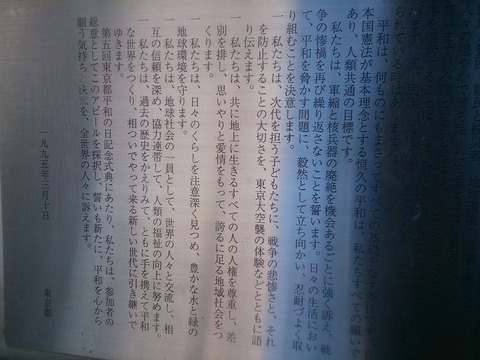 られている時はあ
平和は、何ものにもまさって
本国憲法が基本理念とする恒久の平和は、私たちすべての願いで
あり、人類共通の目標です。
私たちは、軍縮と核兵器の廃絶を機会あるごとに強く訴え、戦
争の惨禍を再び繰り返さないことを誓います。日々の生活におい
て、平和を脅かす問題に、毅然として立ち向かい、忍耐づよく取
り組むことを決意します。
一 私たちは、次代を担う子どもたちに、戦争の悲惨さと、それ
を防止することの大切さを、東京大空襲の体験などとともに語
り伝えます。
一 私たちは、共に地上に生きるすべての人の人権を尊重し、差
別を排し、思いやりと愛情をもって、誇るに足る地域社会をつ
くります。
一 私たちは、日々のくらしを注意深く見つめ、豊かな水と緑の
地球環境を守ります。
一 私たちは、地球社会の一員として、世界の人々と交流し、相
互の信頼を深め、協力連帯して、人類の福祉の向上に努めます。
一 私たちは、過去の歴史をかえりみて、ともに手を携えて平和
な世界をつくり、相ついでやって来る新しい世代に引き継いで
ゆきます。
第五回東京都平和の日記念式典にあたり、私たちは、参加者の
総意としてこのアピールを採択し、誓いも新たに、平和を心から
願う気持ちと決意を、全世界の人々に訴えます。
一九九五年三月十日
東京都